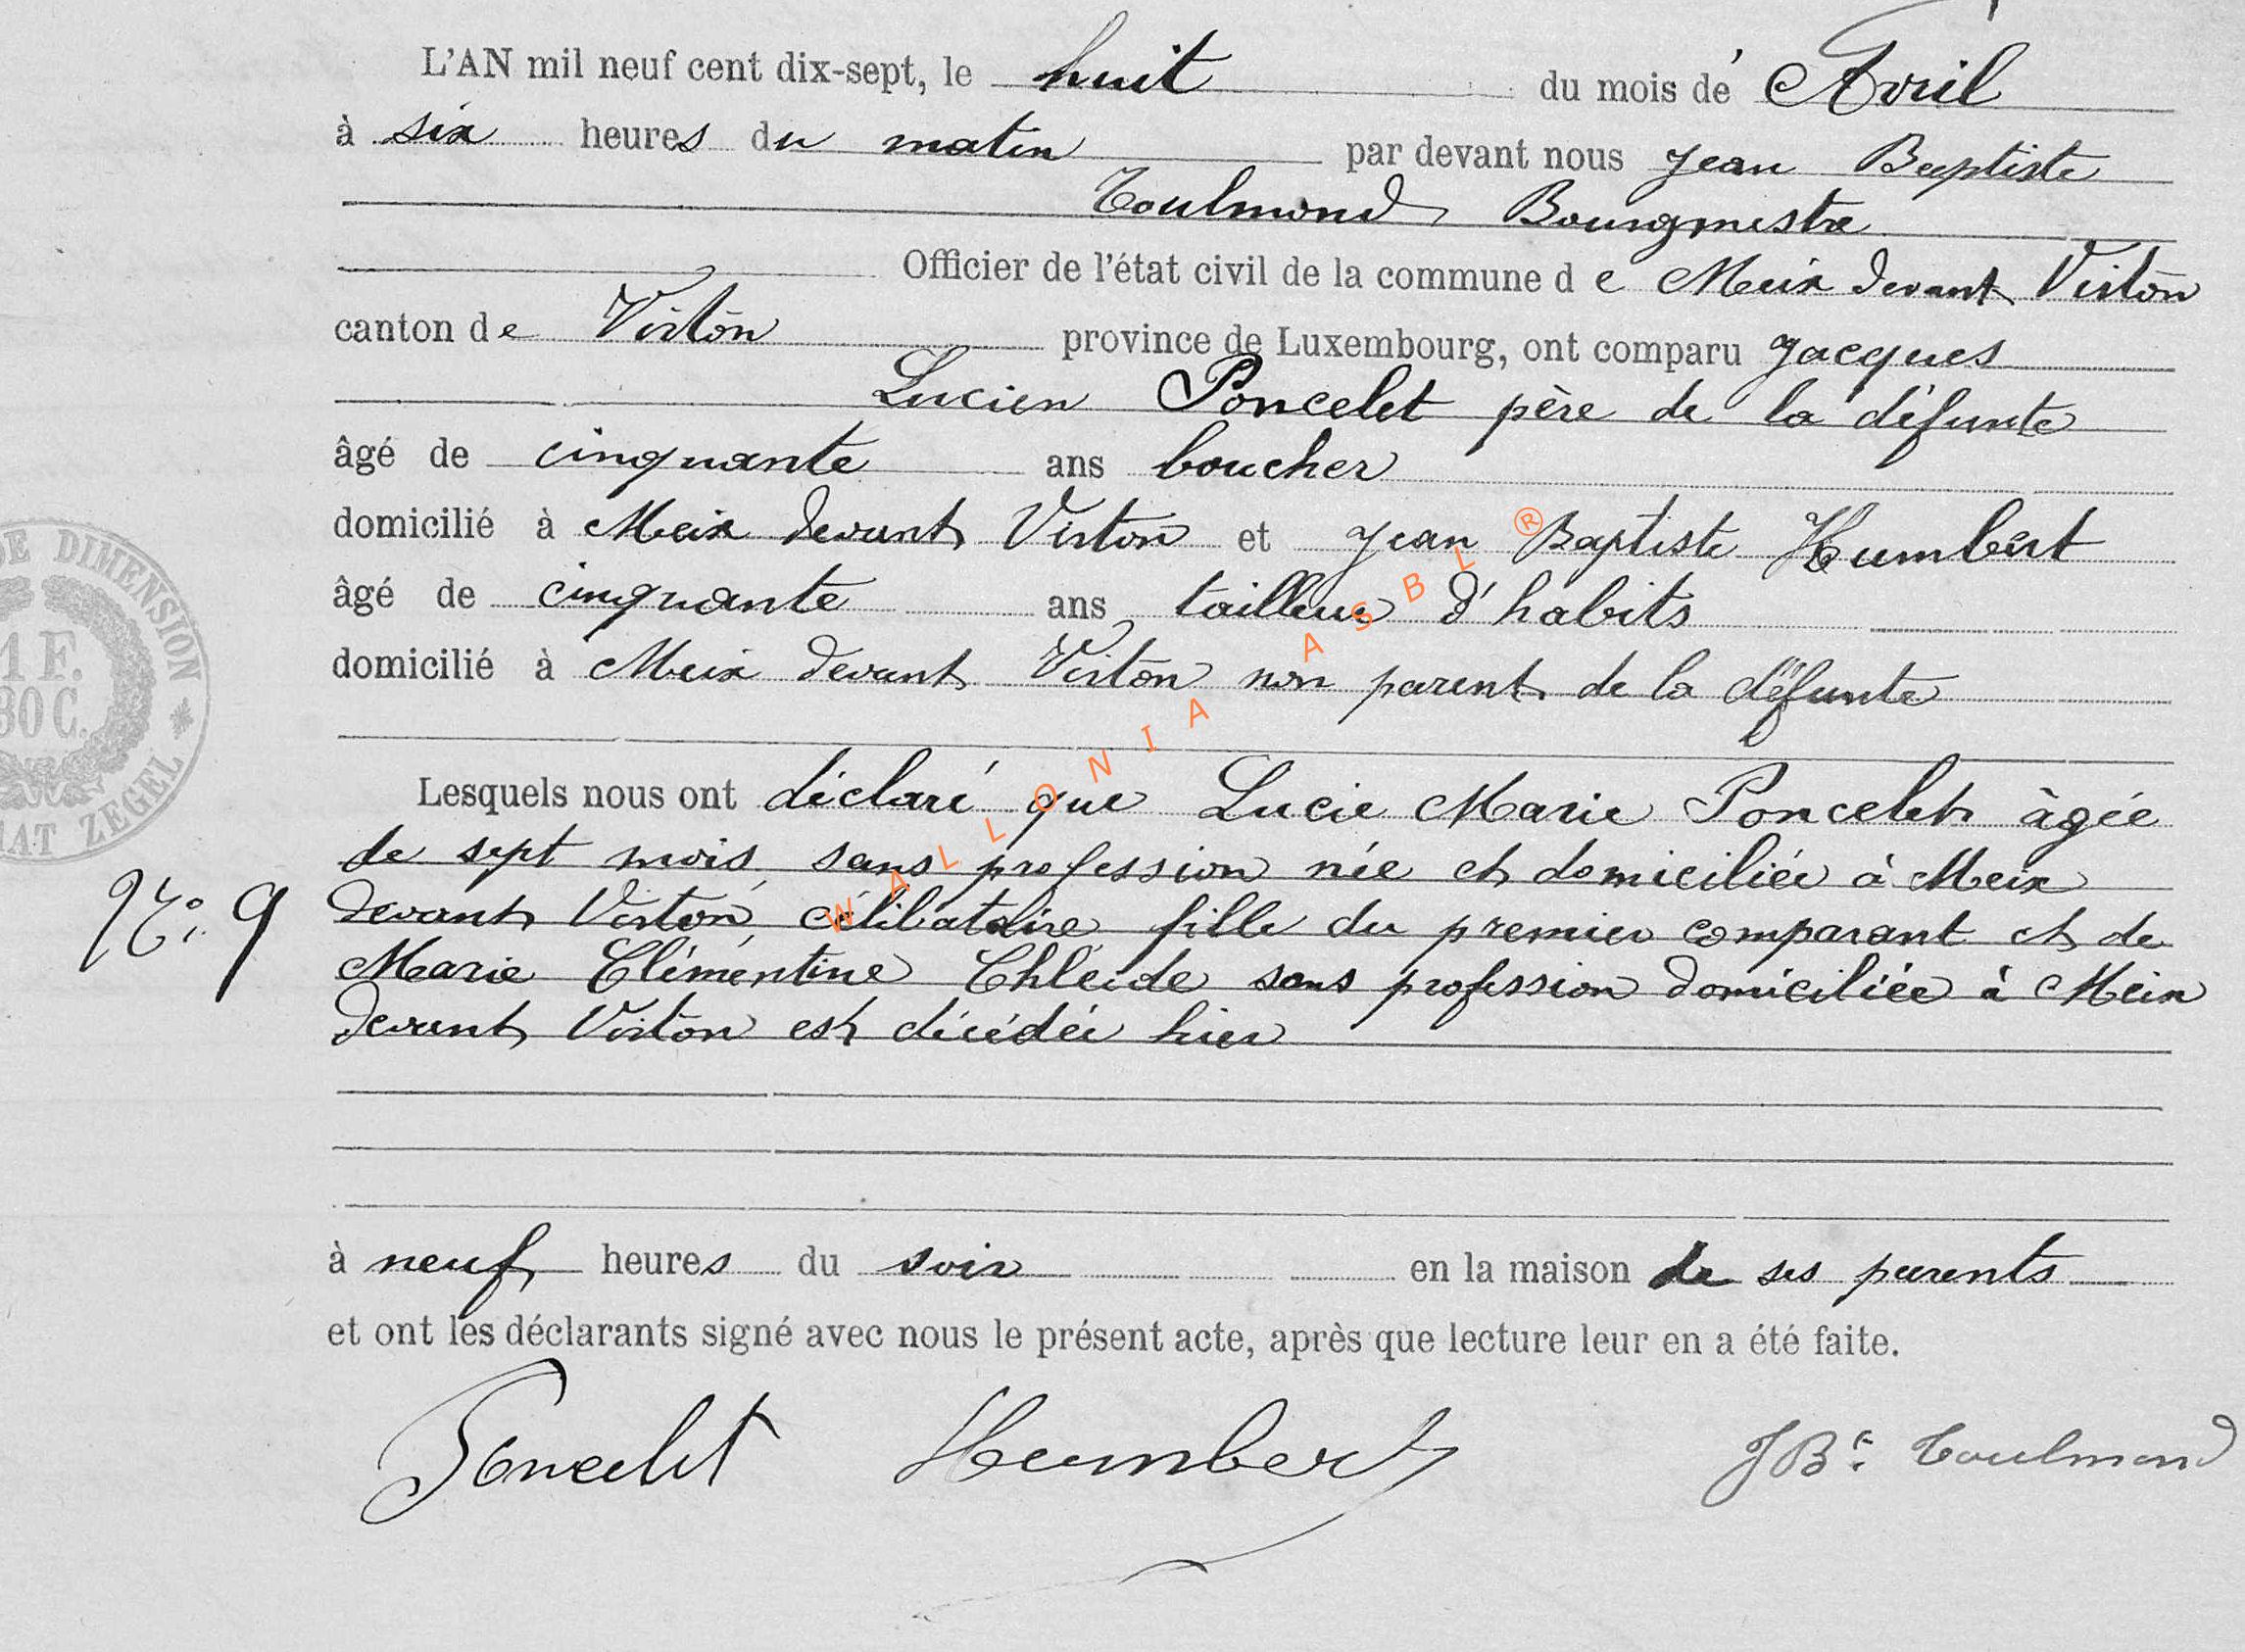 L'AN mil neuf cent dix-sept, le huit du mois de Avril
à six heures du matin par devant nous Jean Baptiste
Toulmond Bourgmestre
Officier de l'état civil de la commune de Meix devant Virton
canton de Virton province de Luxembourg, ont comparu Jacques
Lucien Poncelet père de la défunte
âgé de cinquante ans boucher
domicilié à Meix devant Virton et Jean Baptiste Humbert
âgé de cinquante ans tailleur d'habits
domicilié à Meix devant Virton non parent de la défunte
Lesquels nous ont déclaré que Lucie Marie Poncelet âgée
de sept mois, sans profession née et domiciliée à Meix
N° 9 devant Virton, célibataire fille du premier comparant et de
Marie Clémentine Chléide sans profession domiciliée à Meix
devant Virton est décédée hier
à neuf heures du soir en la maison de ses parents
et ont les déclarants signé avec nous le présent acte, après que lecture leur en a été faite.
Poncelet Humbert JBte Toulmond
DE DIMENSION
1 F.
30 C.
ZEGEL
WALLONIA ASBL ®